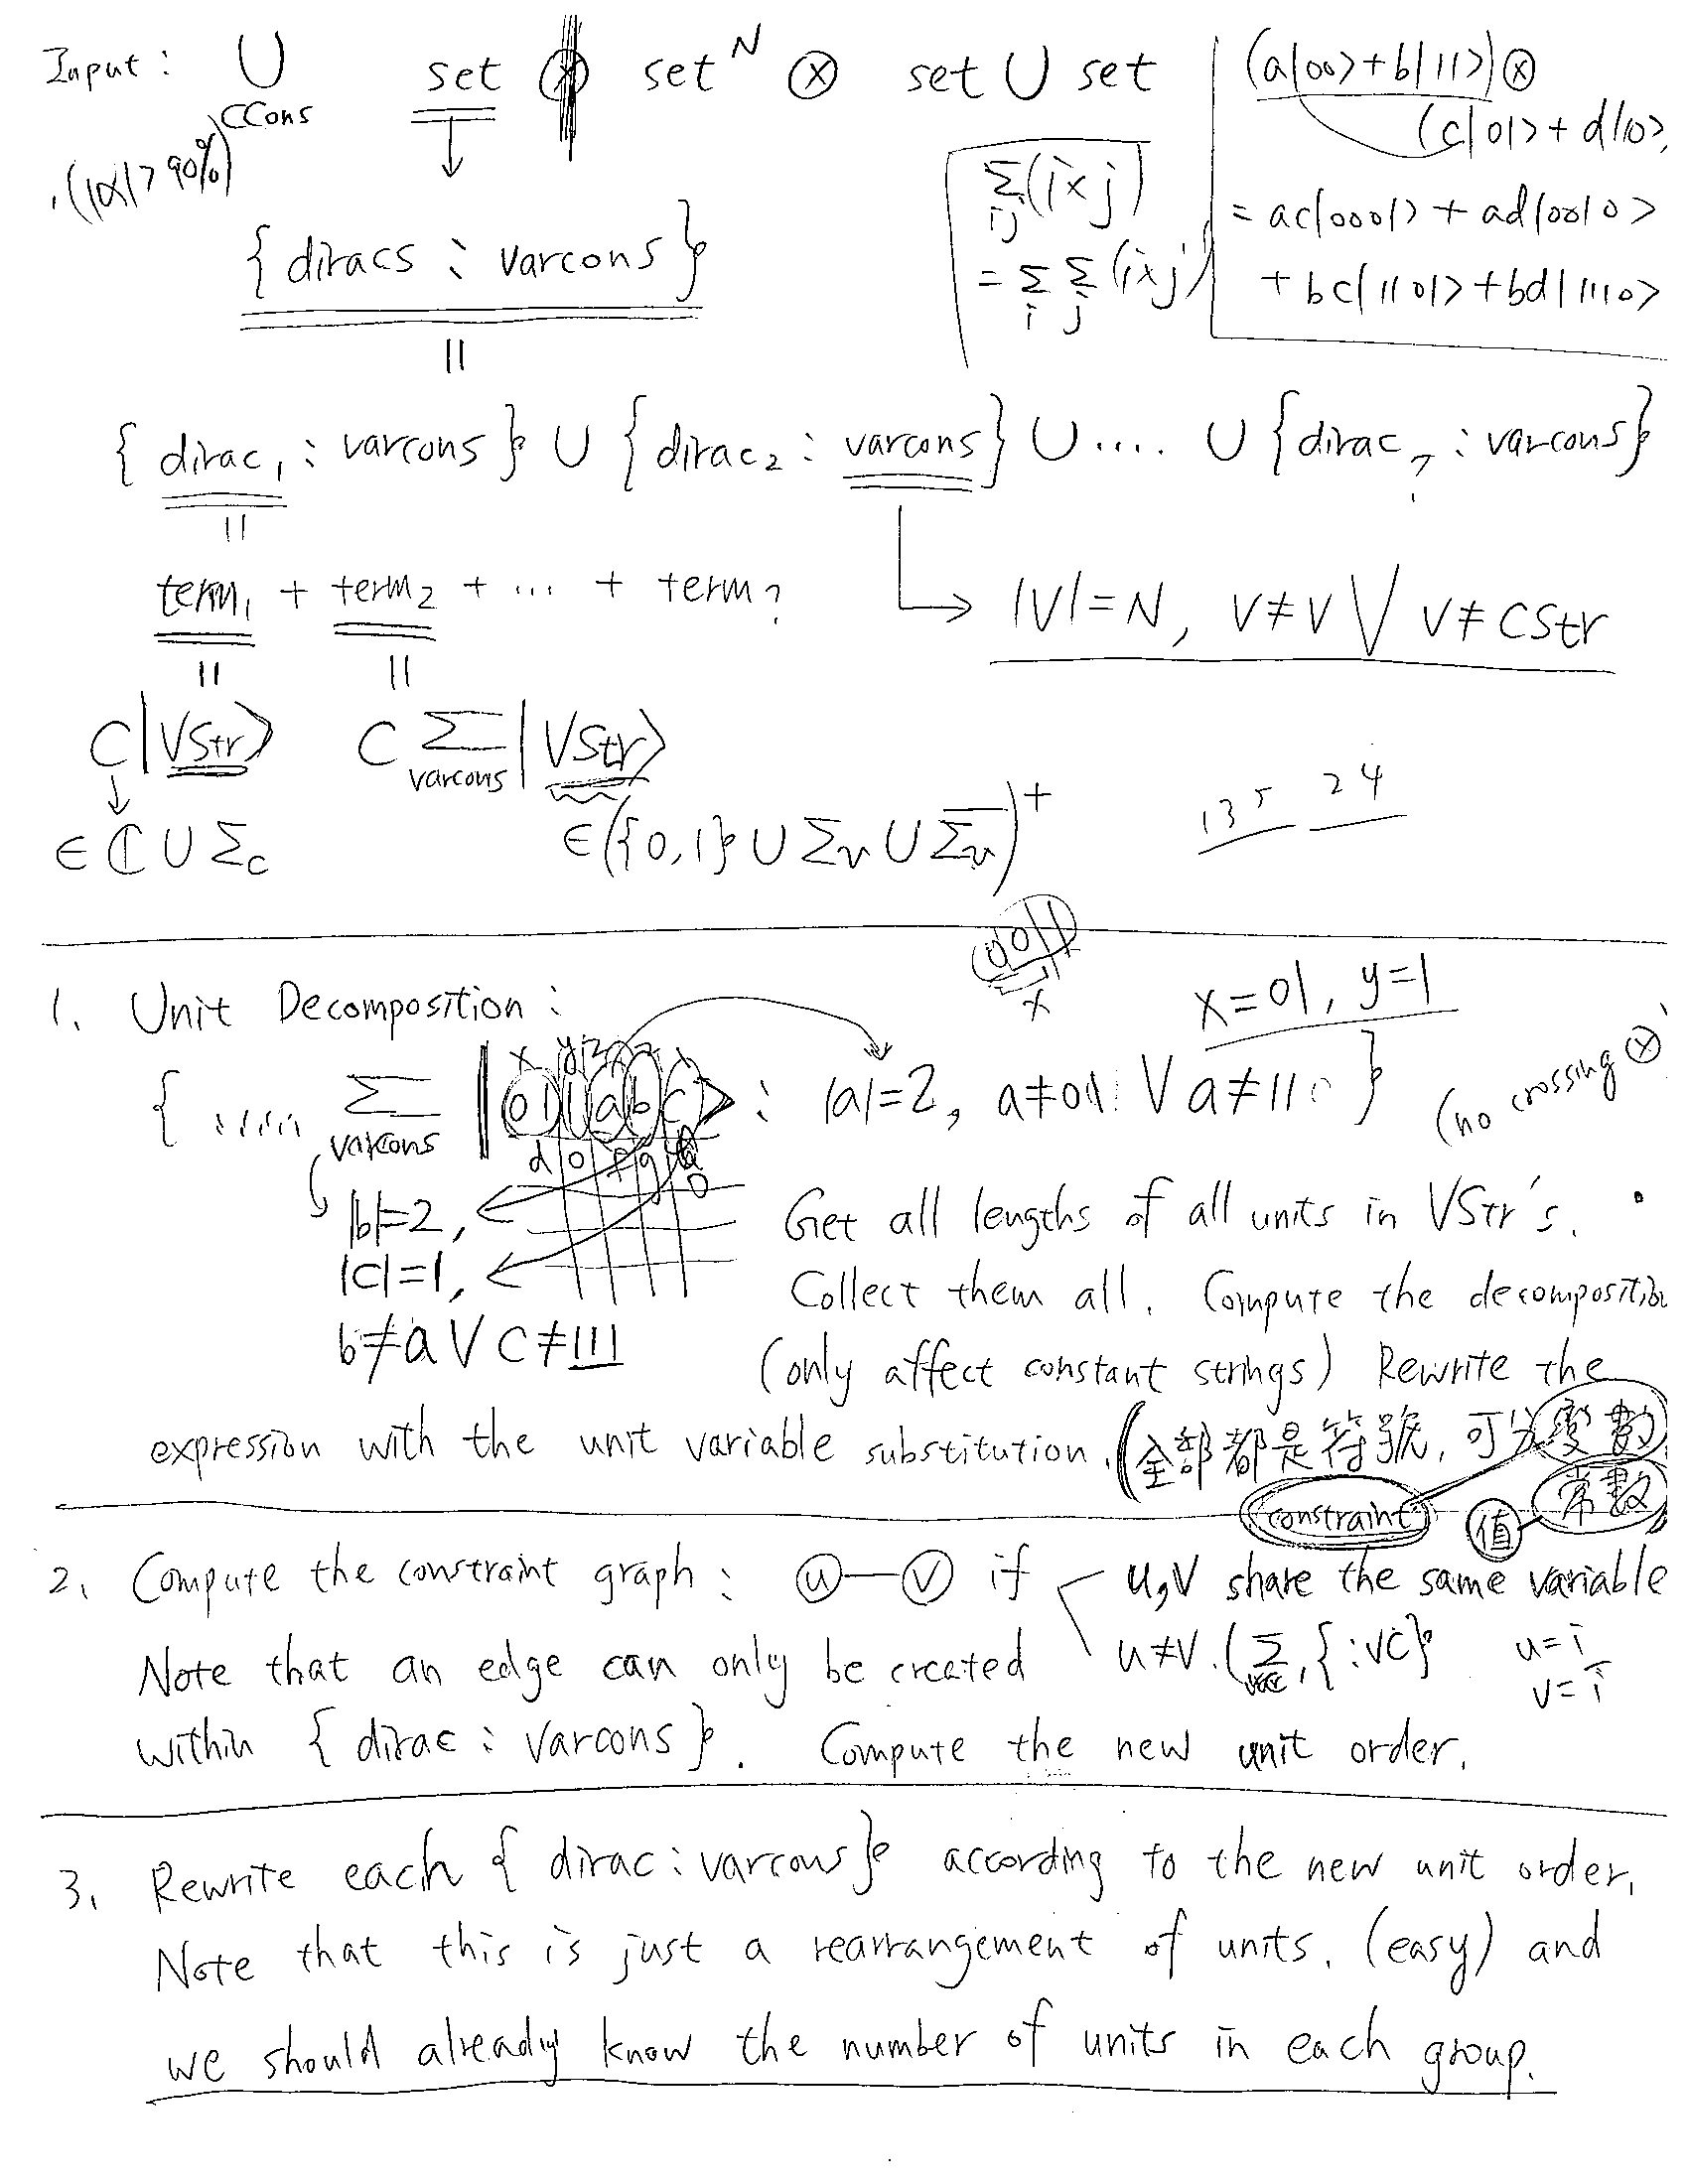 Input: ∪ set ⊗ set^N ⊗ set ∪ set
CCons
(|α|>90%)
(a|00>+b|11>)⊗
(c|01>+d|10>)
= ac|0001> + ad|0010>
+ bc|1101> + bd|1110>
Σ_ij (i×j)
= Σ_i Σ_j (i×j)
{ diracs : varcons }
||
{ dirac₁ : varcons } ∪ { dirac₂ : varcons } ∪ .... ∪ { dirac_? : varcons }
||
term₁ + term₂ + ... + term?
→ |V|=N, V≠V ∨ V≠CStr
|| ||
C|VStr> C Σ_varcons |VStr>
∈ ℂ ∪ Σc ∈({0,1} ∪ Σv ∪ Σ̅v̅)⁺
135 24
0011
x
1. Unit Decomposition :
x=01, y=1
{ ..... Σ_varcons |011abc> : |a|=2, a≠01 ∨ a≠11 }
(no crossing ⊗)
|b|=2,
|c|=1,
b≠a ∨ c≠111
Get all lengths of all units in VStr's.
Collect them all. Compute the decomposition
(only affect constant strings) Rewrite the
expression with the unit variable substitution. (全部都是符號, 可分變數
constraint 值 常數
2. Compute the constraint graph : ⓤ—ⓥ if u,v share the same variable
Note that an edge can only be created u≠v. (Σ_varc, { :VC} u=i
v=i
within { dirac : varcons }. Compute the new unit order.
3. Rewrite each { dirac : varcons } according to the new unit order.
Note that this is just a rearrangement of units. (easy) and
we should already know the number of units in each group.